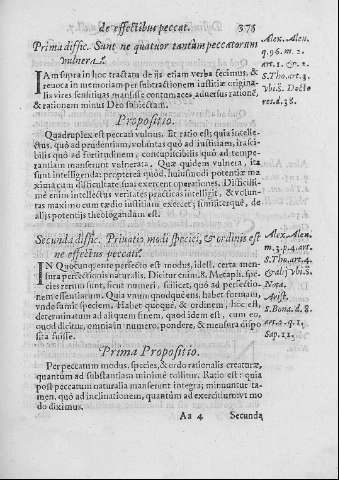 de effectibus peccat. 375
Prima diffic. Sunt ne quatuor tantùm peccatorum
vulnera?
Alex. Alen.
q.96. m. 2.
art. 1. &. 2.
S. Tho. art. 3.
Vbi S. Docto
res. d. 38.
IAm supra in hoc tractatu de ijs etiam verba fecimus, &
reuoca in memoriam per subtractionem iustitiæ origina-
lis vires sensibiles mansisse contumaces aduersus rationē,
& rationem minus Deo subiectam.
Propositio.
Quadruplex est peccati vulnus. Et ratio est; quia intelle-
ctus, quò ad prudentiam, voluntas quò ad iustitiam, irasci-
bilis quò ad fortitudinem, concupiscibilis quò ad tempe-
rantiam manserunt vulnerata. Quæ quidem vulnera, ita
sunt intelligenda: propterea quòd, huiusmodi potentiæ ma
xima cum difficultate suas exercent operationes. Difficili-
mè enim intellectus veritates practicas intelligit, & volun-
tas maximo cum tædio iustitiam exercet; similiterquè, de
alijs potentijs theologandum est.
Secunda diffic. Priuatio modi speciei, & ordinis est
ne effectus peccati?
Alex. Alen.
m. 3. p. 4. art.
S. Tho. art. 4.
& alij vbi S.
Nota.
Arist.
S. Bona. d. 8.
art. 2. q. 1.
Sap. 11.
IN Quocunque perfectio est modus, idest, certa men-
sura perfectionis naturalis. Dicitur enim. 8. Metaph. spe-
cies rerum sunt, sicut numeri, scilicet, quò ad perfectio-
nem essentiarum. Quia vnum quodquè ens, habet formam,
vnde sumit speciem. Habet quoquè, & ordinem, hoc est,
determinationem ad aliquem finem, quod idem est, cum eo,
quod dicitur, omnia in numero, pondere, & mensura dispo
sita fuisse.
Prima Propositio.
Per peccatum modus, species, & ordo rationalis creaturæ,
quantùm ad substantiam minimè tollitur. Ratio est: quia
post peccatum naturalia manserunt integra; minuuntur ta-
men, quò ad inclinationem, quantùm ad exercitium vt mo
do diximus.
Aa 4 Secunda